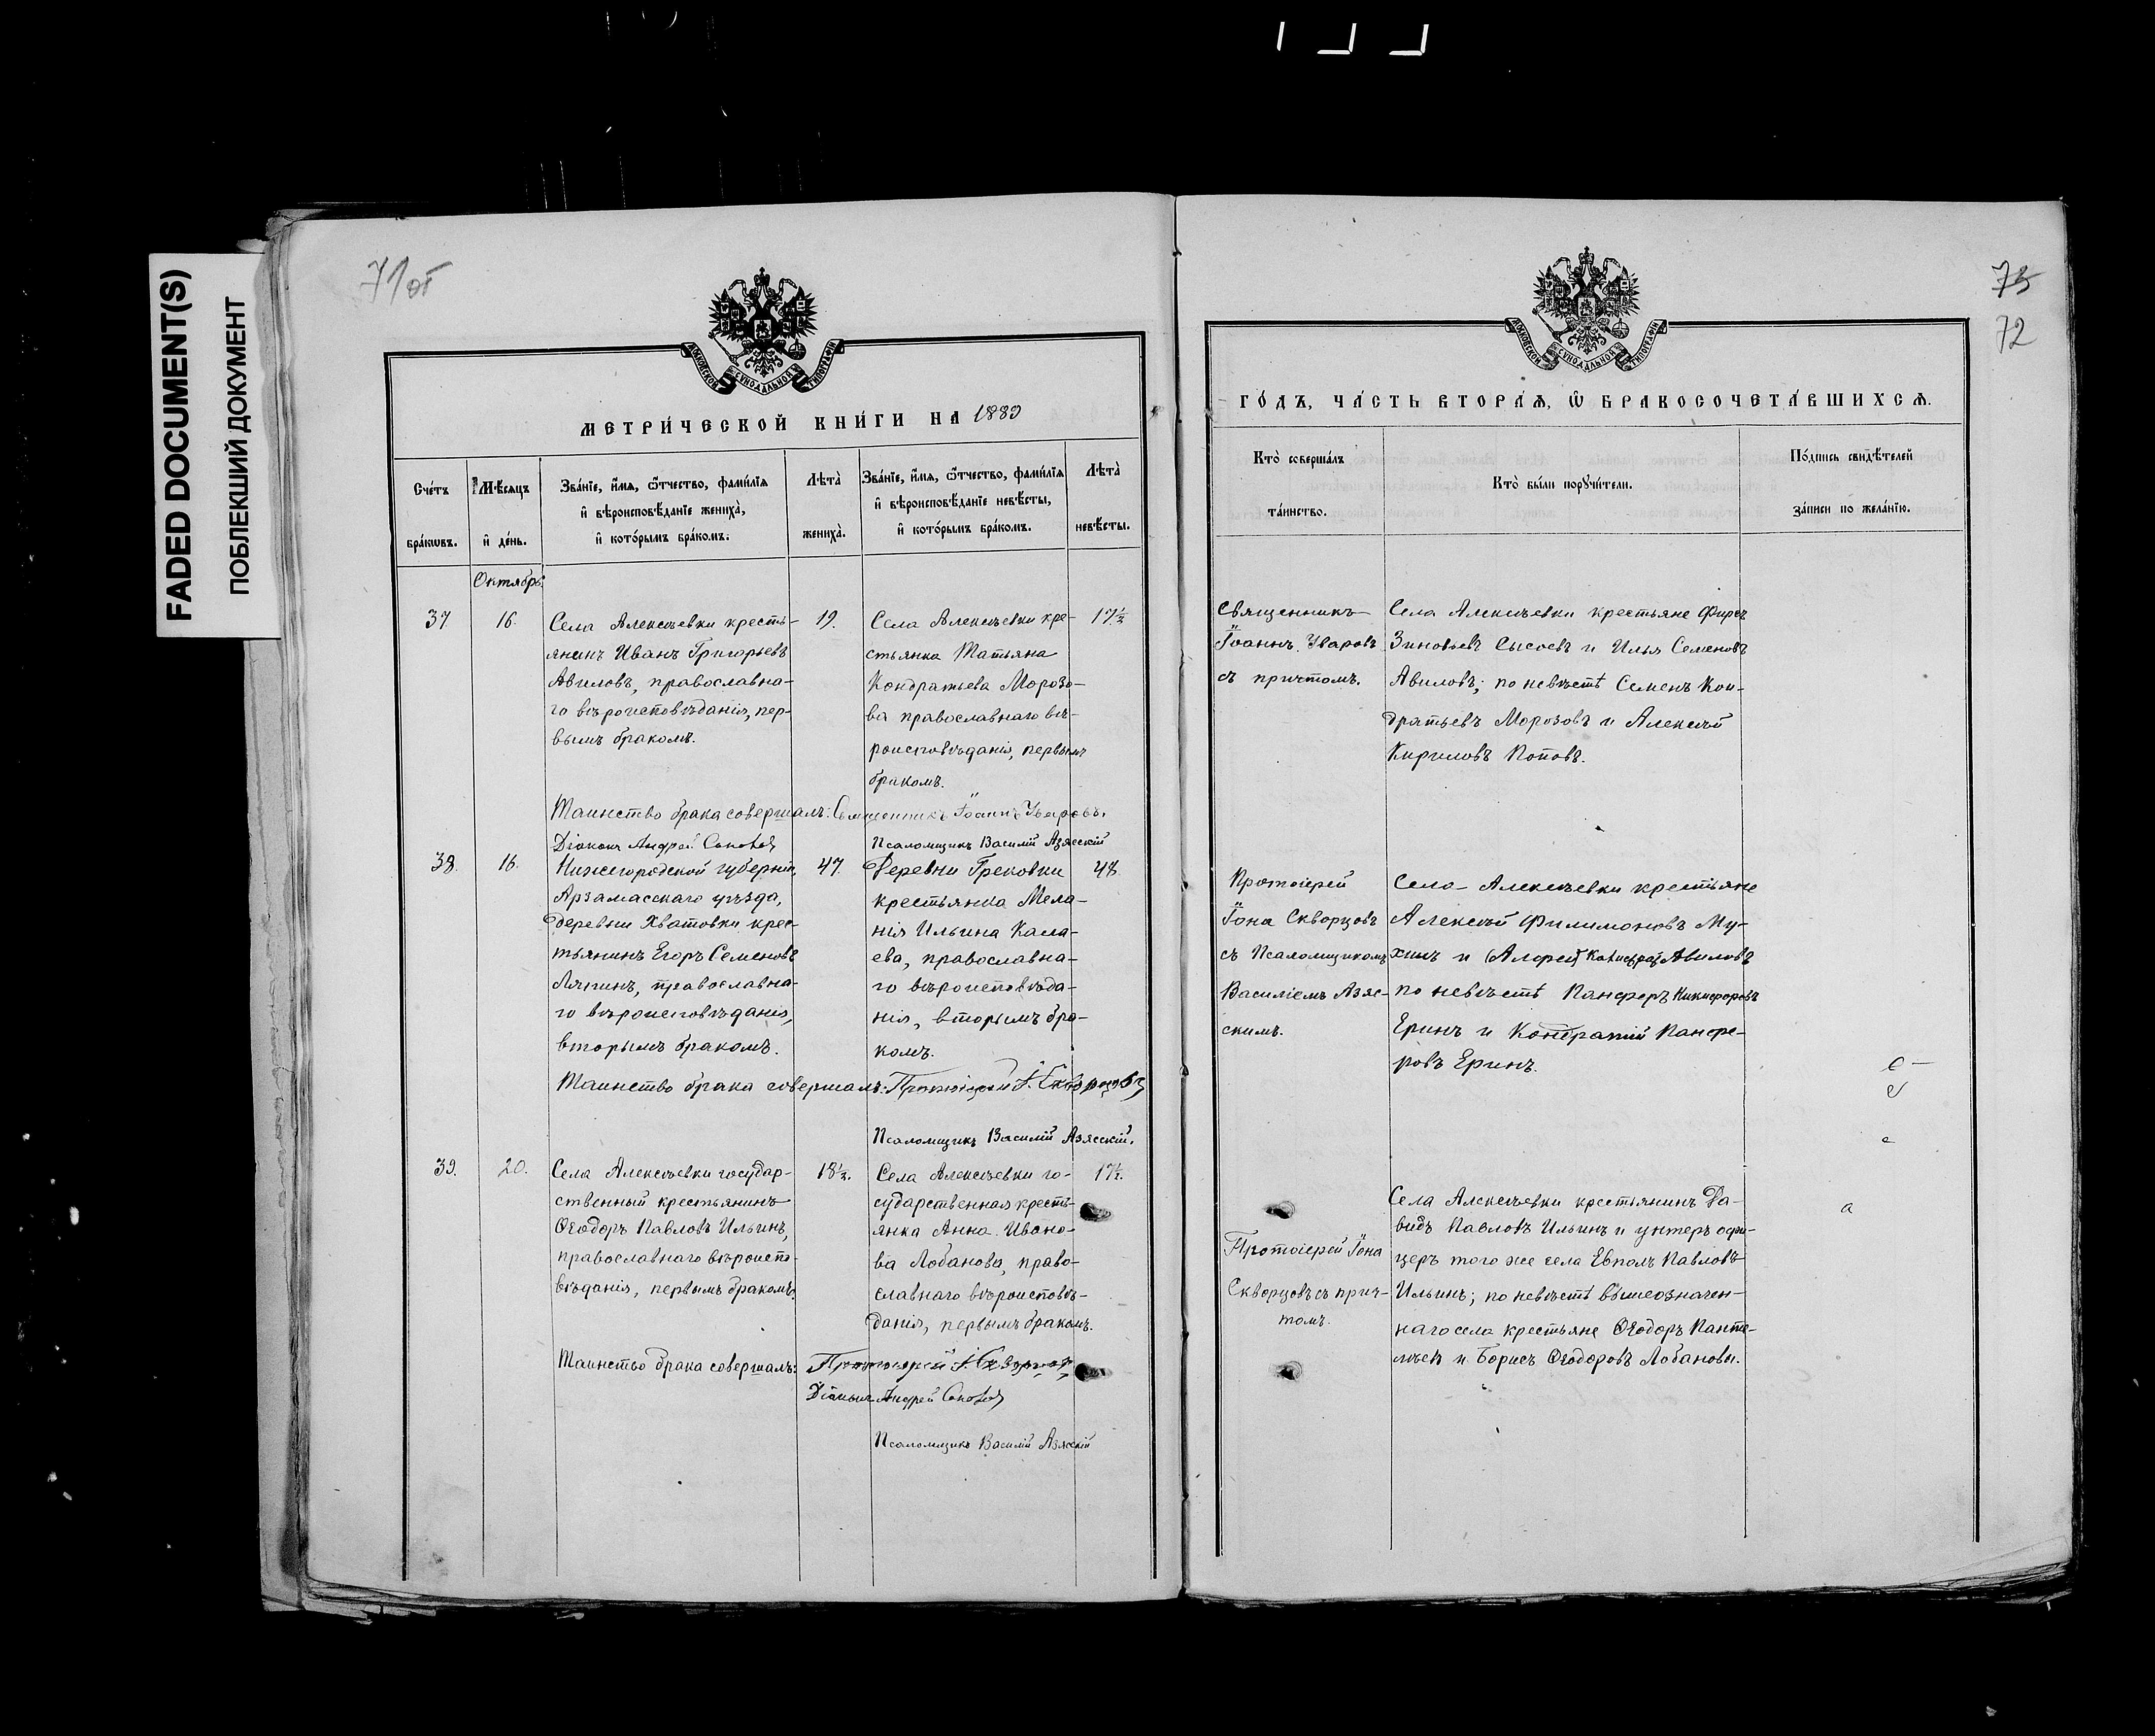 FADED DOCUMENT(S)
ПОБЛЕКШИЙ ДОКУМЕНТ
71об
МОСКОВСКОЙ СУНОДАЛЬНОЙ ТИПОГРАФІИ
МЕТРИ́ЧЕСКОЙ КНИ́ГИ НА 1889
Сче́тъ бра́кѡвъ.
Мѣ́сяцъ и҆ де́нь.
Зва́нїе, и҆́мѧ, ѻ҆́тчество, фами́лїѧ
и҆ вѣроисповѣ́данїе жениха̀,
и҆ кото́рымъ бра́комъ.
Лѣта̀ жениха̀.
Зва́нїе, и҆́мѧ, ѻ҆́тчество, фами́лїѧ
и҆ вѣроисповѣ́данїе невѣ́сты,
и҆ кото́рымъ бра́комъ.
Лѣта̀ невѣ́сты.
Октябрь
37.
16.
Села Алексѣевки кресть-
янинъ Иванъ Григорьевъ
Авиловъ, православна-
го вѣроисповѣданія, пер-
вымъ бракомъ.
19.
Села Алексѣевки кре-
стьянка Татьяна
Кондратьева Морозо-
ва православнаго вѣ-
роисповѣданія, первымъ
бракомъ.
17½
Таинство брака совершалъ: Священникъ Іоаннъ Уваровъ.
Діаконъ Андрей
Псаломщикъ Василій Азясскій
38.
16.
Нижегородской губерніи,
Арзамасскаго уѣзда,
деревни Хватовки крес-
тьянинъ Егоръ Семеновъ
Ляпинъ, православна-
го вѣроисповѣданія,
вторымъ бракомъ.
47.
Деревни Грековки
крестьянка Мела-
нія Ильина Кала-
ева, православна-
го вѣроисповѣда-
нія, вторымъ бра-
комъ.
48.
Таинство брака совершалъ: Протоіерей І. Скворцовъ
Псаломщикъ Василій Азясскій.
39.
20.
Села Алексѣевки государ-
ственный крестьянинъ
Ѳеодоръ Павловъ Ильинъ,
православнаго вѣроиспо-
вѣданія, первымъ бракомъ.
18½.
Села Алексѣевки го-
сударственная кресть-
янка Анна Ивано-
ва Лобанова, право-
славнаго вѣроисповѣ-
данія, первымъ бракомъ.
17½.
Таинство брака совершалъ: Протоіерей І. Скворцовъ
Діаконъ Андрей
Псаломщикъ Василій Азясскій
75
72
МОСКОВСКОЙ СУНОДАЛЬНОЙ ТИПОГРАФІИ
ГО́ДЪ, ЧА́СТЬ ВТОРА́Ѧ, Ѿ БРАКОСОЧЕТА́ВШИХСѦ.
Кто̀ соверша́лъ
та́инство.
Кто̀ бы́ли порꙋчи́тели.
По́дпись свидѣ́телей
за́писи по жела́нїю.
Священникъ
Іоаннъ Уваровъ
съ причтомъ.
Села Алексѣевки крестьяне Фирсъ
Зиновьевъ Сысоевъ и Илья Семеновъ
Авиловъ; по невѣстѣ Семенъ Кон-
дратьевъ Морозовъ и Алексѣй
Кириловъ Поповъ.
Протоіерей
Іона Скворцовъ
съ Псаломщикомъ
Василіемъ Азяс-
скимъ.
Села Алексѣевки крестьяне
Алексѣй Филимоновъ Му-
хинъ и Авиловъ
по невѣстѣ Панферъ Никифоровъ
Еринъ и Кондратій Панфе-
ровъ Еринъ.
Протоіерей Іона
Скворцовъ съ прич-
томъ.
Села Алексѣевки крестьянинъ Да-
видъ Павловъ Ильинъ и унтеръ офи-
церъ того же села Евполъ Павловъ
Ильинъ; по невѣстѣ вышеозначен-
наго села крестьяне Ѳеодоръ Панте-
лѣевъ и Борисъ Ѳеодоровъ Лобановы.